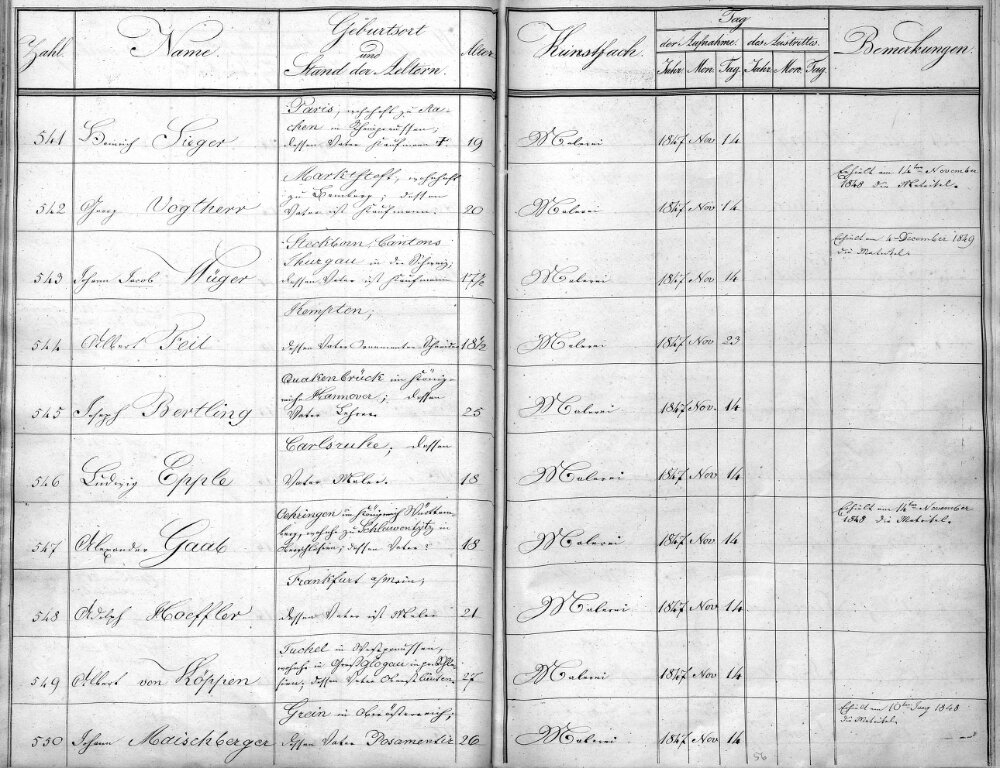 Zahl. Name. Geburtsort und Stand der Aeltern. Alter Kunstfach. Tag Bemerkungen.
der Aufnahme. des Austrittes.
Jahr. Mon. Tag. Jahr. Mon. Tag.
Paris, wohnhaft zu Aa-
chen in Rheinpreussen,
541 Heinrich Sieger dessen Vater Kaufmann †. 19 Malerei 1847 Nov 14
Marktsteft, wohnhaft
zu Bamberg; dessen
542 Georg Vogtherr Vater ist Kaufmann. 20 Malerei 1847 Nov 14
Erhielt am 14ten November
1848 die Matrikel.
Steckborn, Cantons
Thurgau in der Schweiz;
543 Johann Jacob Wüger dessen Vater ist Kaufmann 17½ Malerei 1847 Nov 14
Erhielt am 4. December 1849
die Matrikel.
Kempten;
544 Albert Feil dessen Vater Schreiber 18½ Malerei 1847 Nov 23
Quakenbrück im König-
reich Hannover; dessen
545 Joseph Bertling Vater Lehrer 25 Malerei 1847 Nov. 14
Carlsruhe, dessen
546 Ludwig Epple Vater Maler. 18 Malerei 1847 Nov 14
Oehringen im Königreich Württem-
berg, wohnh. zu Schlawentzitz in
547 Alexander Gaab Oberschlesien; dessen Vater: 18 Malerei 1847 Nov 14
Erhielt am 14ten November
1848 die Matrikel.
Frankfurt a/Main,
548 Adolph Hoeffler dessen Vater ist Maler 21 Malerei 1847 Nov 14
Tuchel in Westpreussen,
wohnh. in Groß Glogau in pr. Schle-
549 Albert von Köppen sien, dessen Vater Oberstlieuten. 27 Malerei 1847 Nov 14
Grein in Oberösterreich;
550 Johann Maischberger dessen Vater Posamentir 26 Malerei 1847 Nov 14
Erhielt am 10ten 1848
die Matrikel.
56